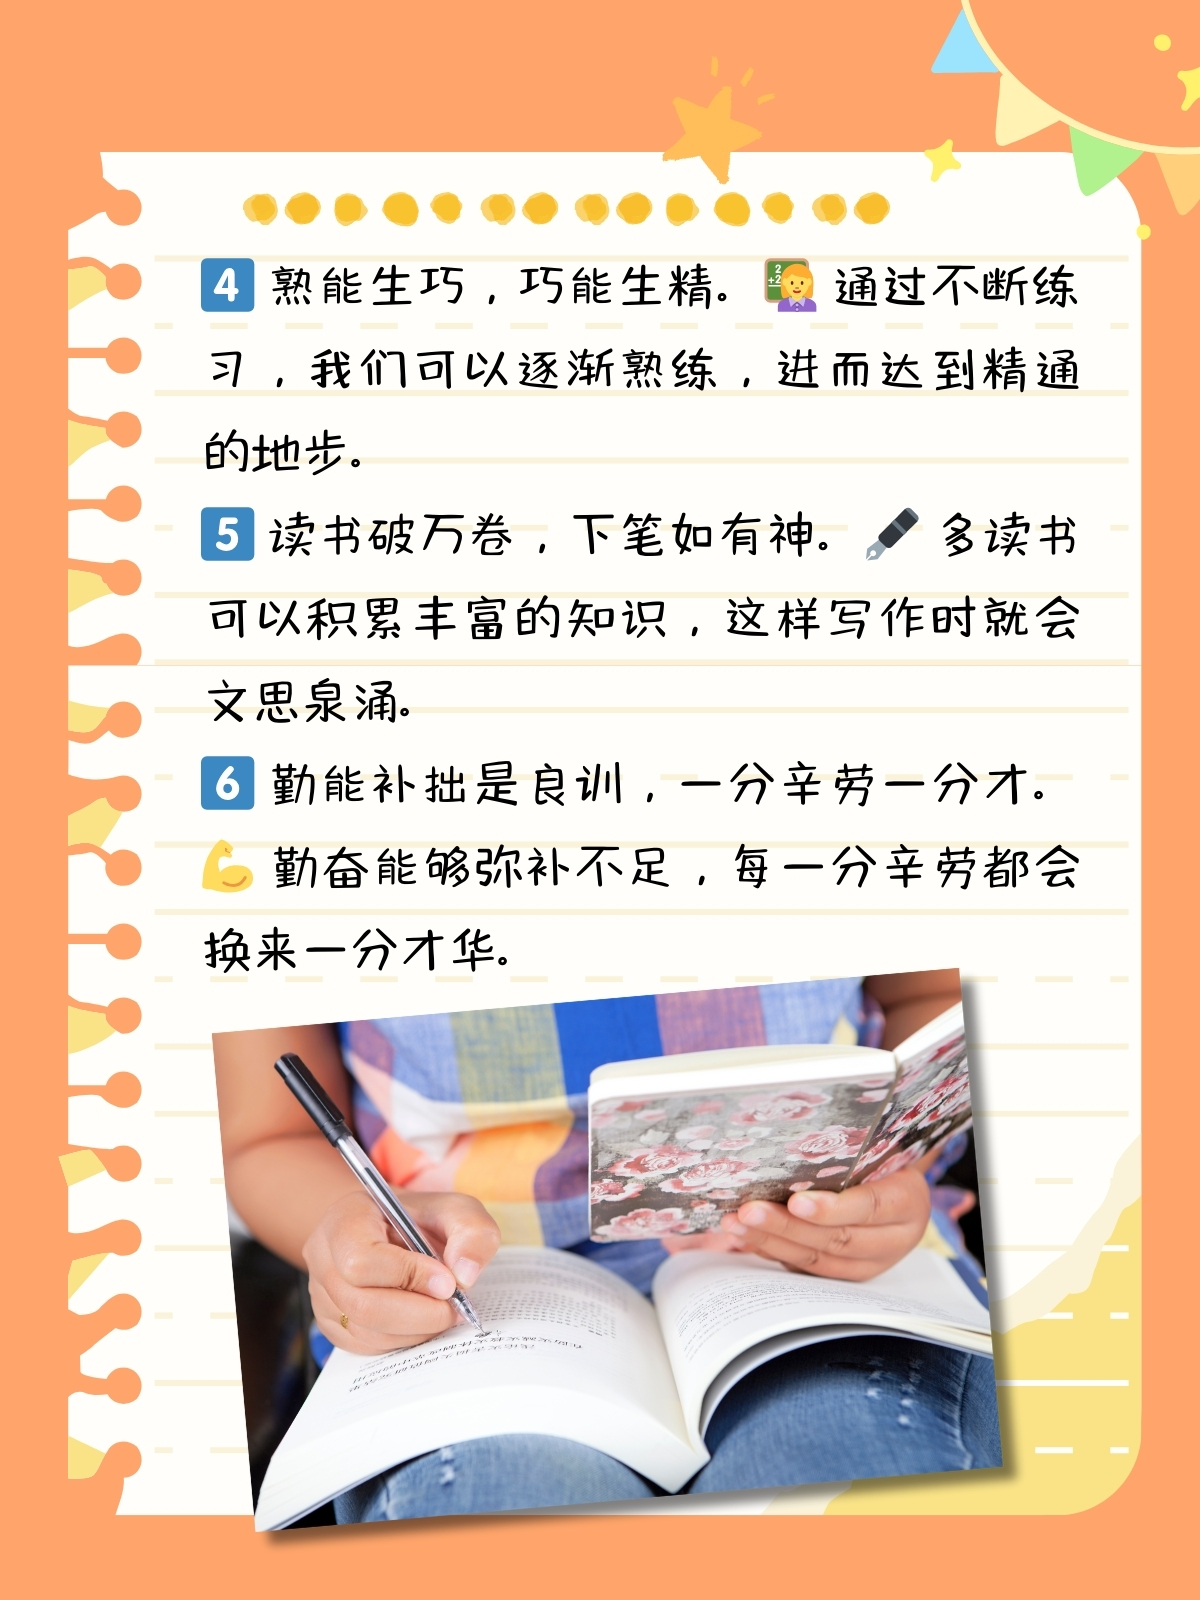 4️⃣ 熟能生巧，巧能生精。👩‍🏫 通过不断练
习，我们可以逐渐熟练，进而达到精通
的地步。
5️⃣ 读书破万卷，下笔如有神。🖋️ 多读书
可以积累丰富的知识，这样写作时就会
文思泉涌。
6️⃣ 勤能补拙是良训，一分辛劳一分才。
💪 勤奋能够弥补不足，每一分辛劳都会
换来一分才华。